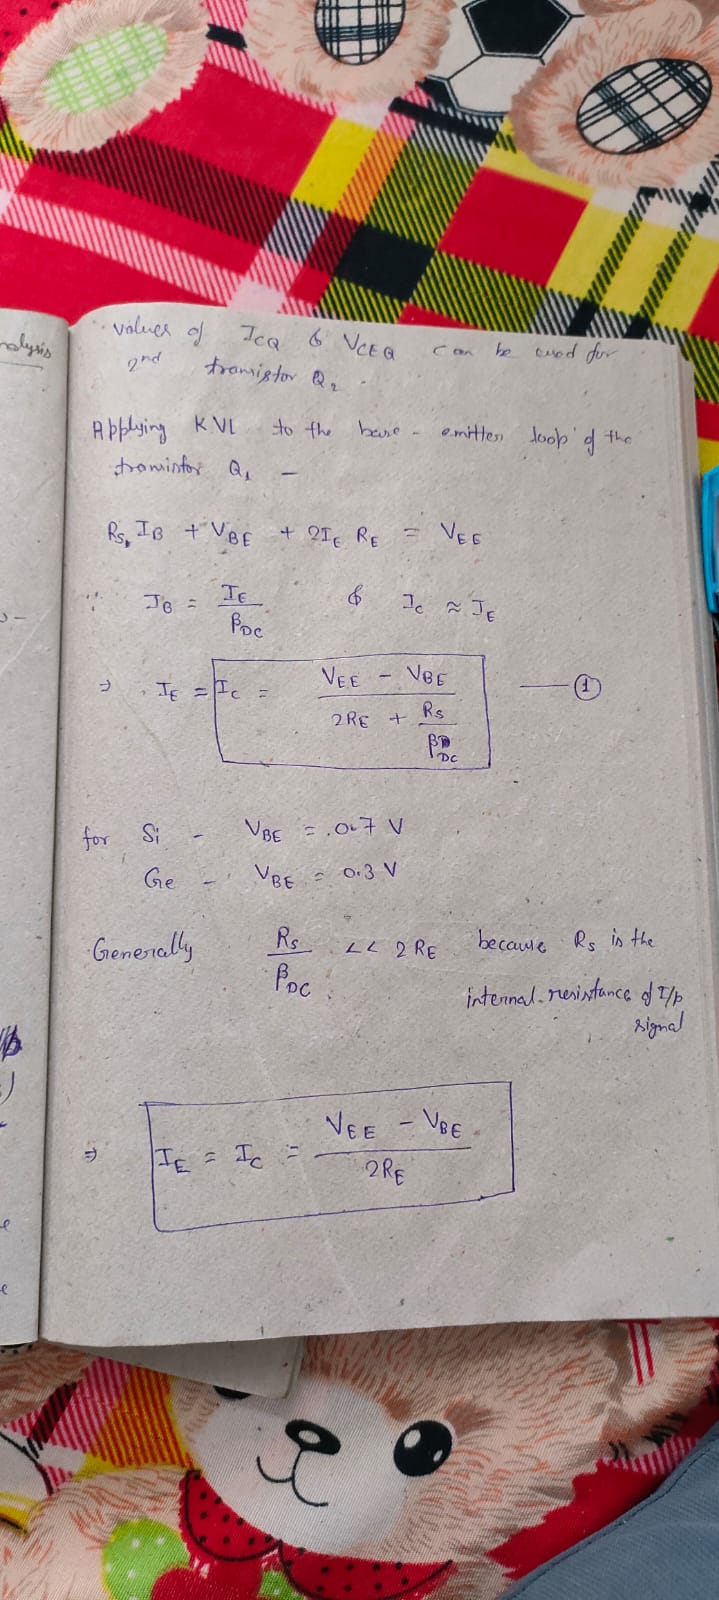 nalysis
values of ICQ & VCEQ can be used for
2nd transistor Q2.
Applying KVL to the base - emitter loop of the
transistor Q1 -
Rs1 IB + VBE + 2IE RE = VEE
∵ IB = IE/βDC & Ic ≈ IE
⇒ IE = Ic = (VEE - VBE)/(2RE + Rs/βDC) —— ①
for Si - VBE = 0.7 V
Ge - VBE = 0.3 V
Generally Rs/βDC << 2RE because Rs is the
internal resistance of I/p
signal
⇒ IE = IC = (VEE - VBE)/2RE